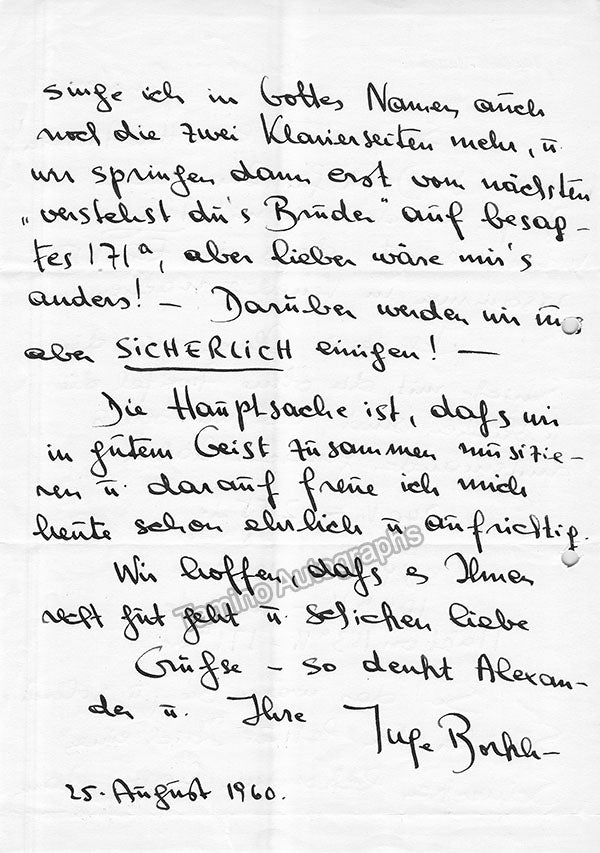 singe ich in Gottes Namen auch
noch die zwei Klavierseiten mehr, u.
wir springen dann erst vom nächsten
„verstehst du's Bruder" auf besag-
tes 171a, aber lieber wäre mir's
anders! – Darüber werden wir uns
aber SICHERLICH einigen! –
Die Hauptsache ist, dafs wir
in gutem Geist zusammen musizie-
ren u. darauf freue ich mich
heute schon ehrlich u. aufrichtig.
Wir hoffen, dafs es Ihnen
recht gut geht u. schicken liebe
Grüfse – so denkt Alexan-
der u. Ihre Inge Borkh –
25. August 1960.
Tamino Autographs